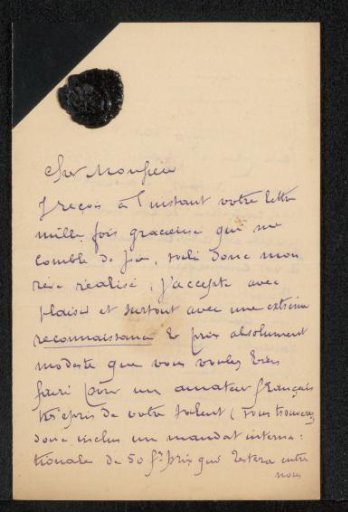 Cher Monsieur
Je reçois à l'instant votre lettre
mille fois gracieuse qui me
comble de joie, voila donc mon
rêve réalisé, j'accepte avec
plaisir et surtout avec une extrême
reconnaissance le prix absolument
modeste que vous voulez bien
faire pour un amateur français
très epris de votre talent (vous trouverez
donc inclus un mandat interna-
tionale de 50 f. prix qui restera entre
nous